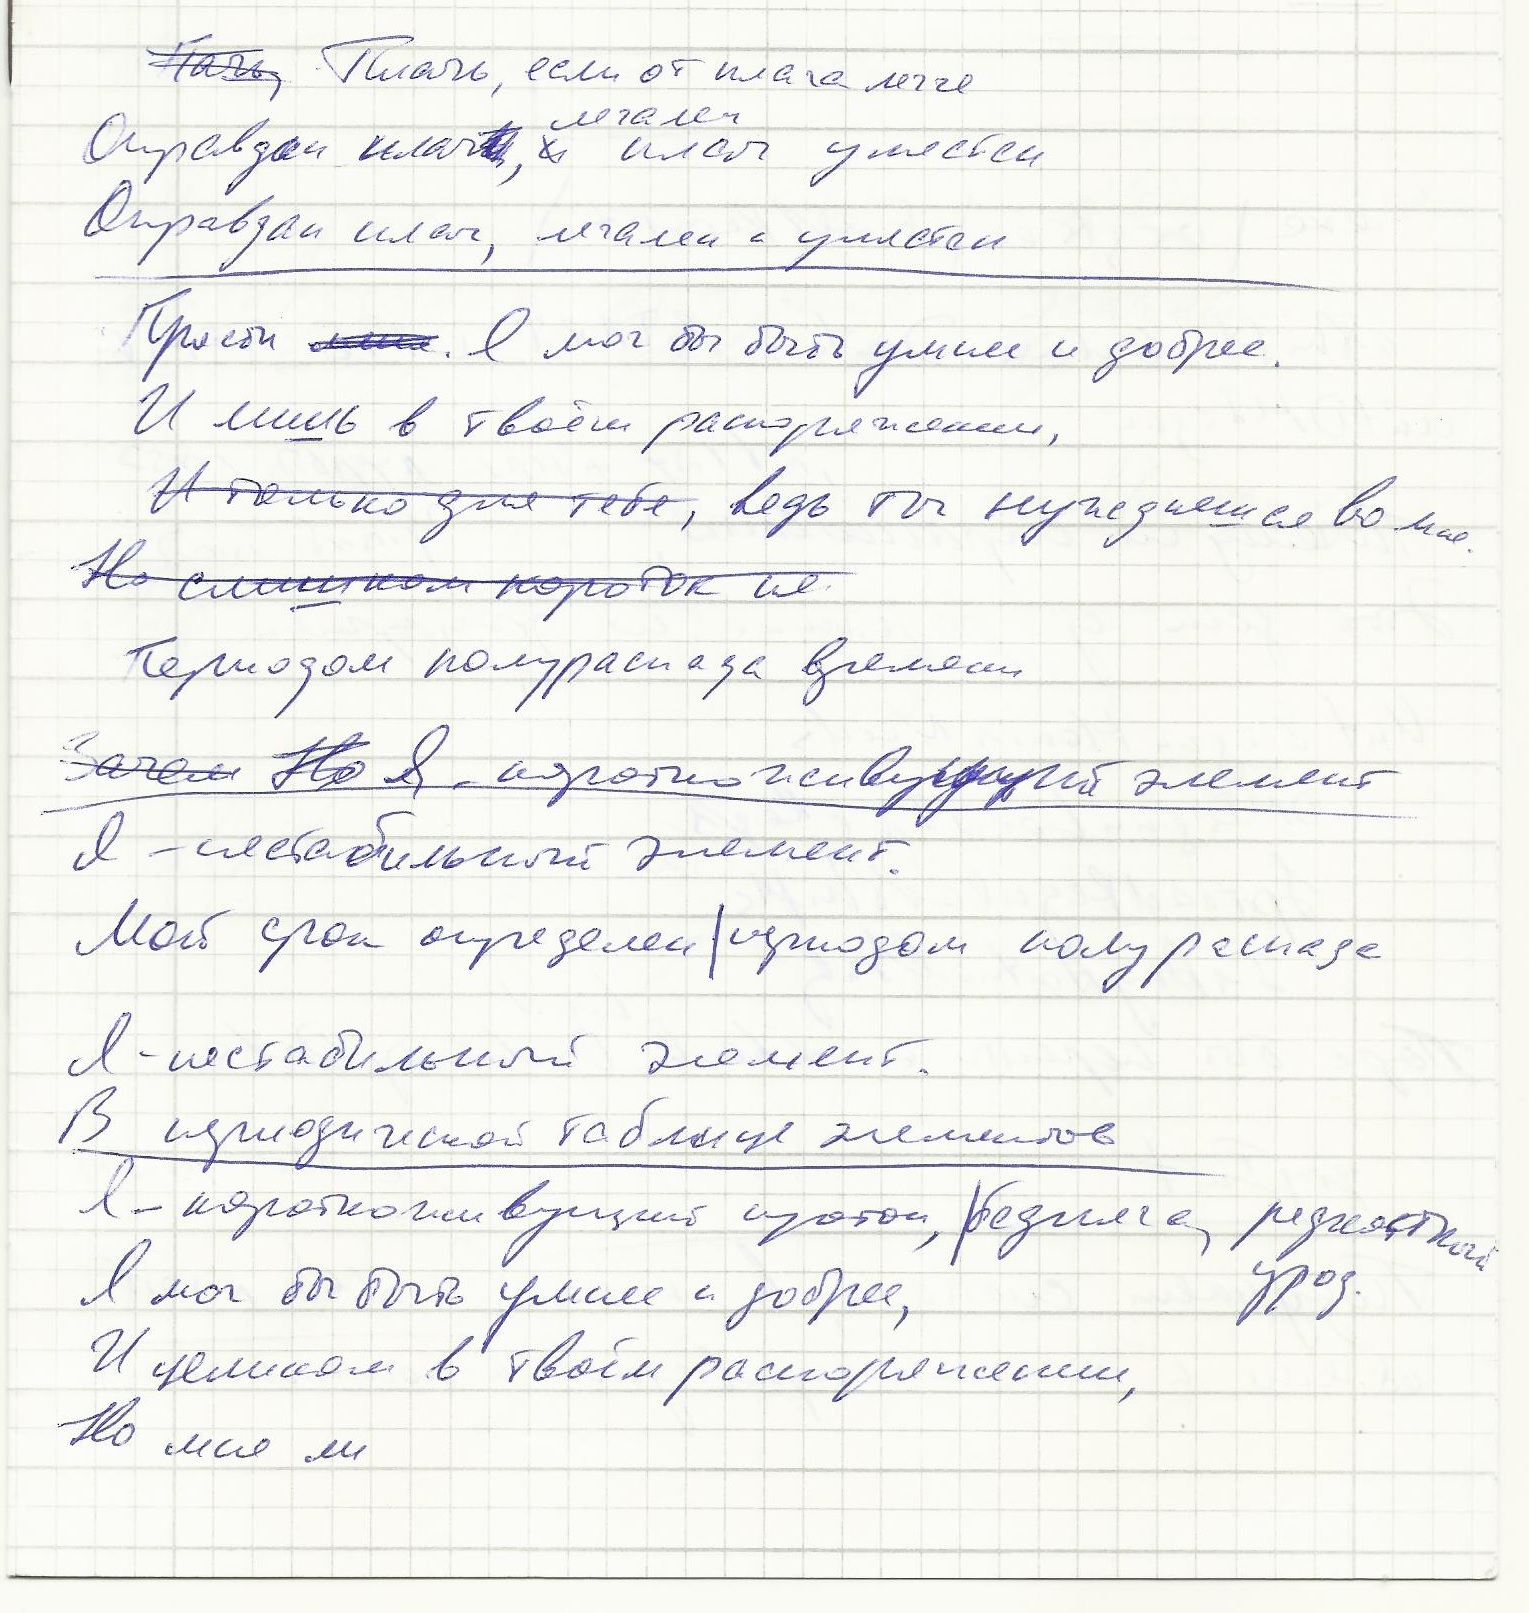 Плачь, если от плача легче
легален
Оправдан плач, и плач уместен
Оправдан плач, легален и уместен
Прости меня. Я мог бы быть умнее и добрее.
И лишь в твоём распоряжении,
И только для тебя, ведь ты нуждаешься во мне.
Но слишком короток пе
Периодом полураспада времени
Зачем Но Я - короткоживущий элемент
Я - нестабильный элемент.
Мой срок определен | периодом полураспада
Я - нестабильный элемент.
В периодической таблице элементов
Я - короткоживущий протон, | бедняга, редкостный
урод.
Я мог бы быть умнее и добрее,
И целиком в твоём распоряжении,
Но мне ли